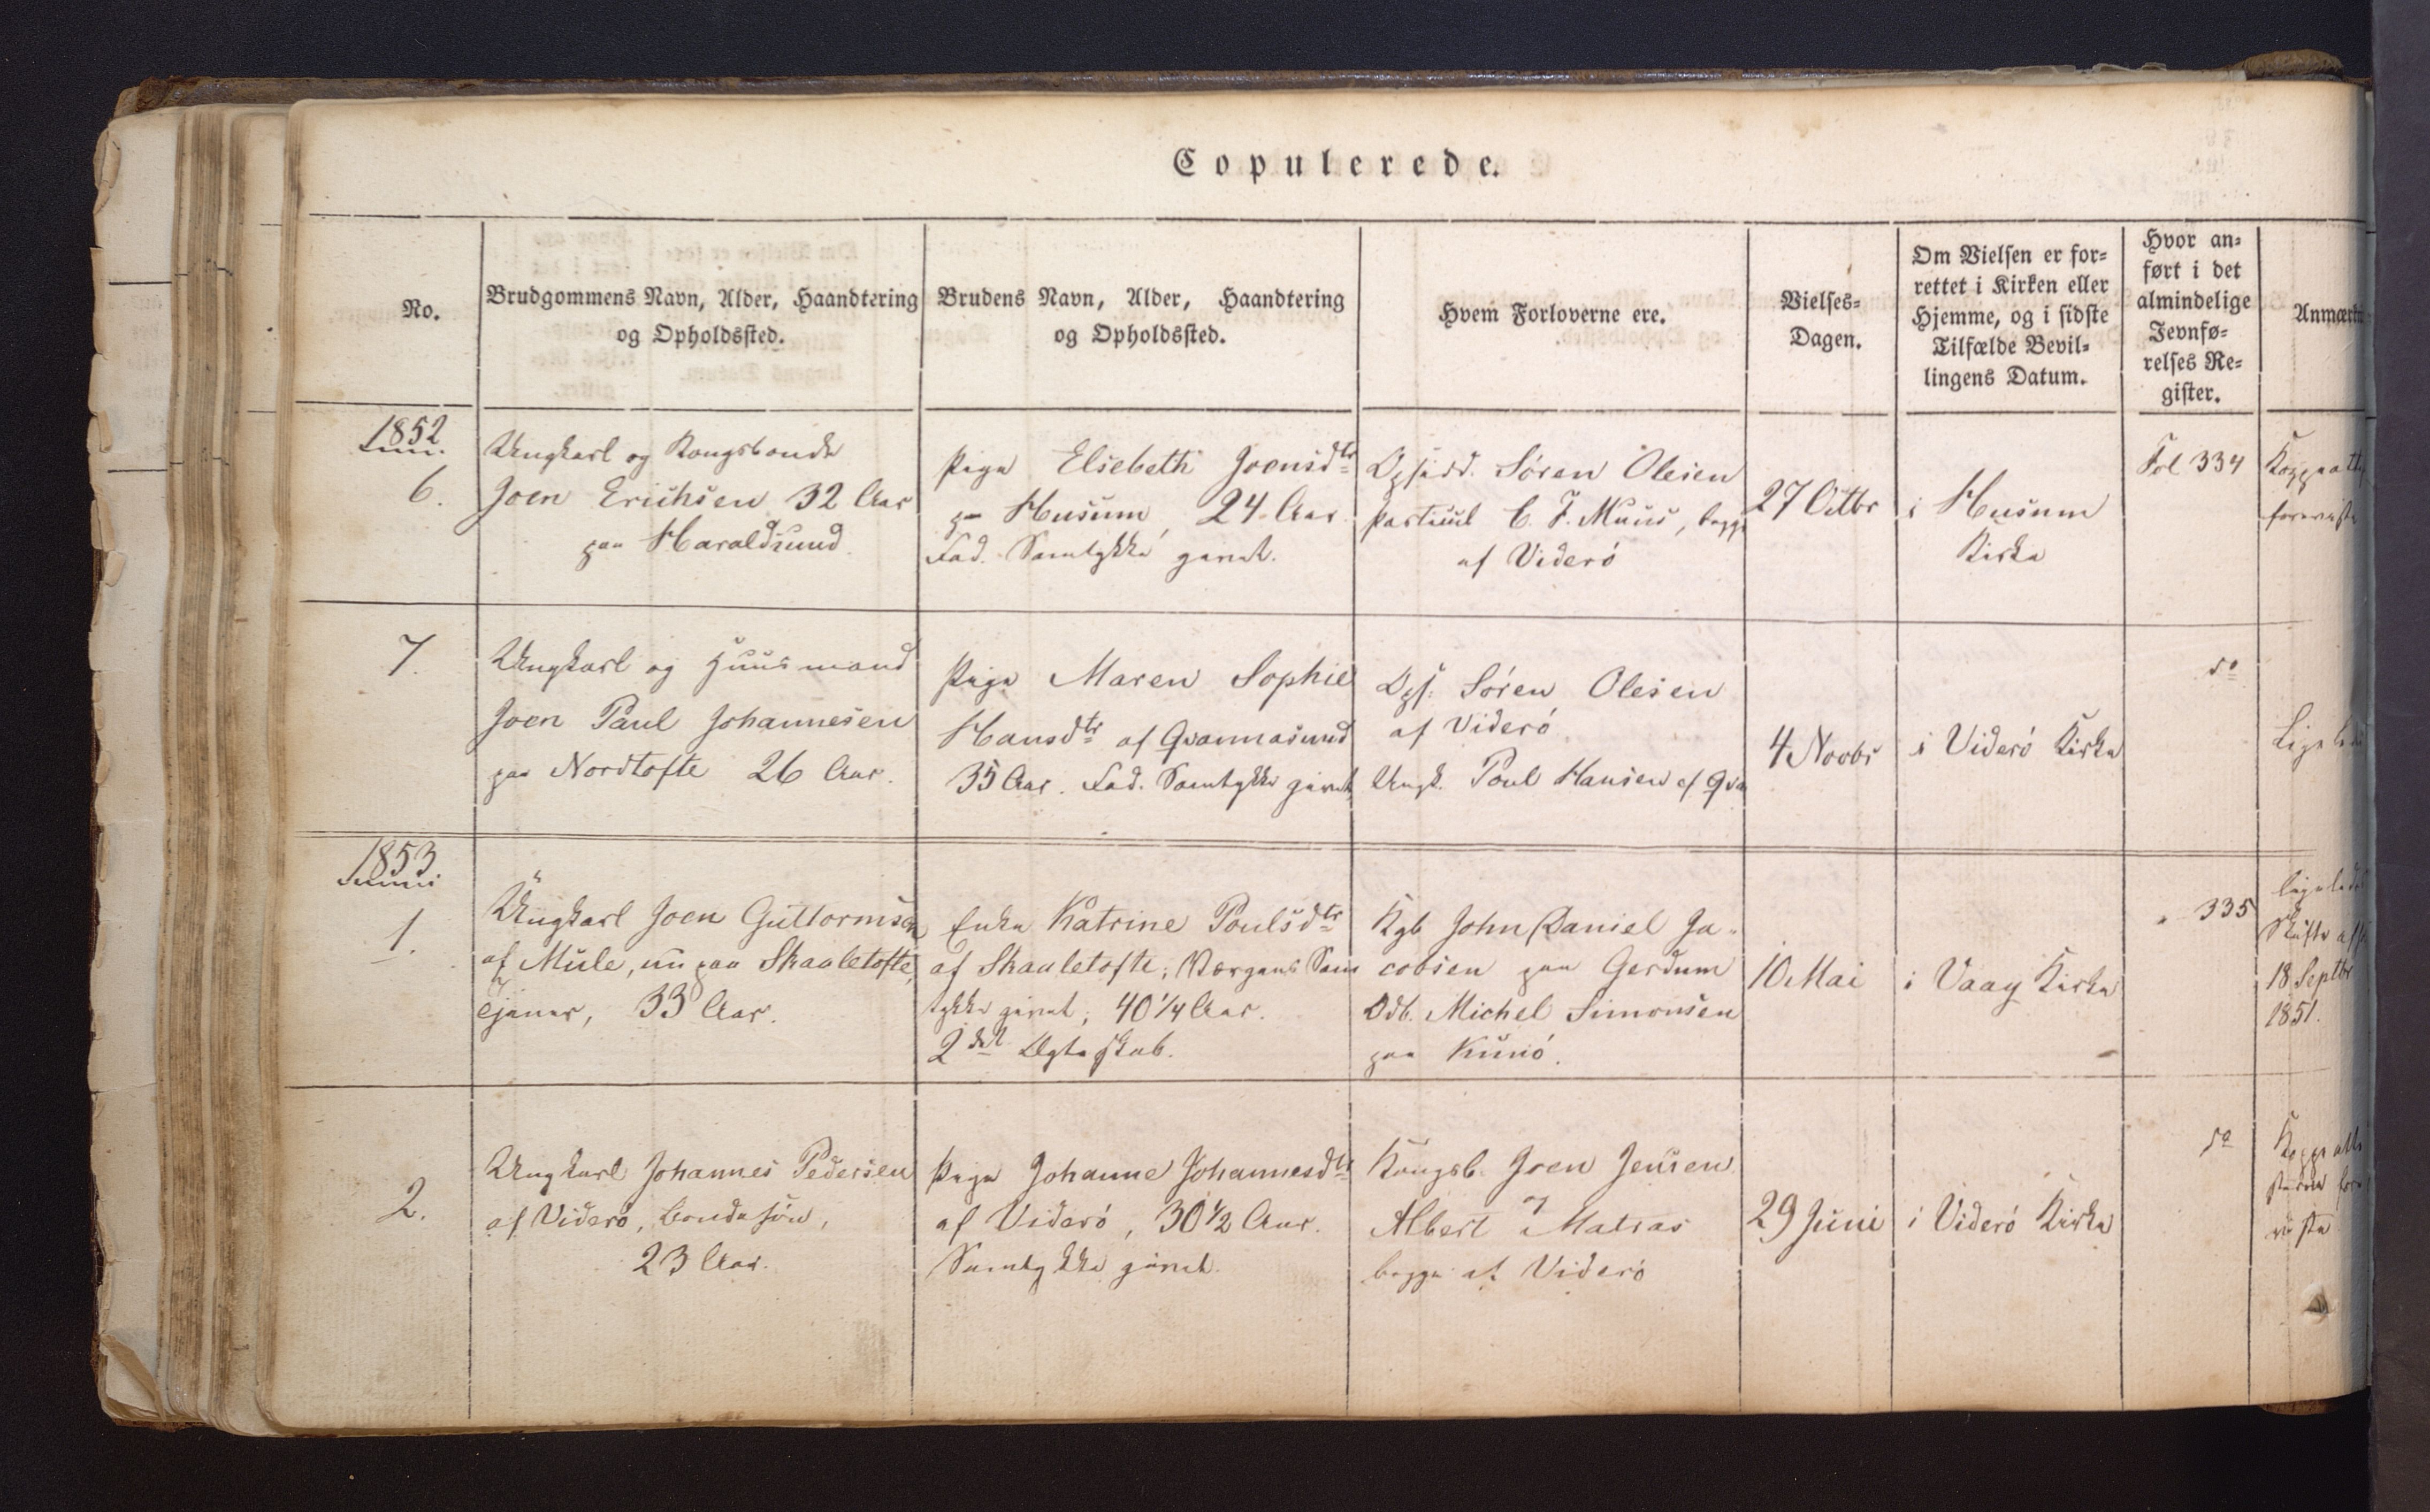 Copulerede.
No.
Brudgommens Navn, Alder, Haandtering
og Opholdssted.
Brudens Navn, Alder, Haandtering
og Opholdssted.
Hvem Forloverne ere.
Vielses-
Dagen.
Om Vielsen er for-
rettet i Kirken eller
Hjemme, og i sidste
Tilfælde Bevil-
lingens Datum.
Hvor an-
ført i det
almindelige
Jevnfø-
relses Re-
gister.
Anmærk
1852
6.
Ungkarl og Kongsbonde
Joen Erichsen 32 Aar
paa Haraldsund
Pige Elsebeth Joensdtr
Husum, 24 Aar.
Fad. Samtykke givet.
Søren Olesen
C. F. Muus, begge
af Viderö
27 Octbr
i Husum
Kirke
Fol 334
Koppeatt
7.
Ungkarl og Huusmand
Joen Paul Johannesen
paa Nordtofte 26 Aar.
Pige Maren Sophie
Hansdtr af Qvannasund
35 Aar. Fad. Samtykke givet
Søren Olesen
af Viderö
Ungk. Poul Hansen af Qva
4 Novbr
i Viderö Kirke
do
Ligeled
1853
1.
Ungkarl Joen Guttormsen
af Mule, nu paa Skaaletofte,
tjener, 33 Aar.
Enke Katrine Poulsdtr
af Skaaletofte; Værgens Sam
tykke givet, 40 1/4 Aar.
2det Ægteskab.
Kgb John Daniel Ja-
cobsen paa Gerdum
Odb. Michel Simonsen
paa Kunö.
10 Mai
i Vaag Kirke
" 335
ligeled
Skifte
18 Septbr
1851.
2.
Ungkarl Johannes Pedersen
af Viderö, bondesön,
23 Aar.
Pige Johanne Johannesdtr
af Viderö, 30 1/2 Aar.
Samtykke givet.
Kongsb. Joen Jensen
Albert Matras
begge af Viderö
29 Juni
i Viderö Kirke
do
Koppeatte